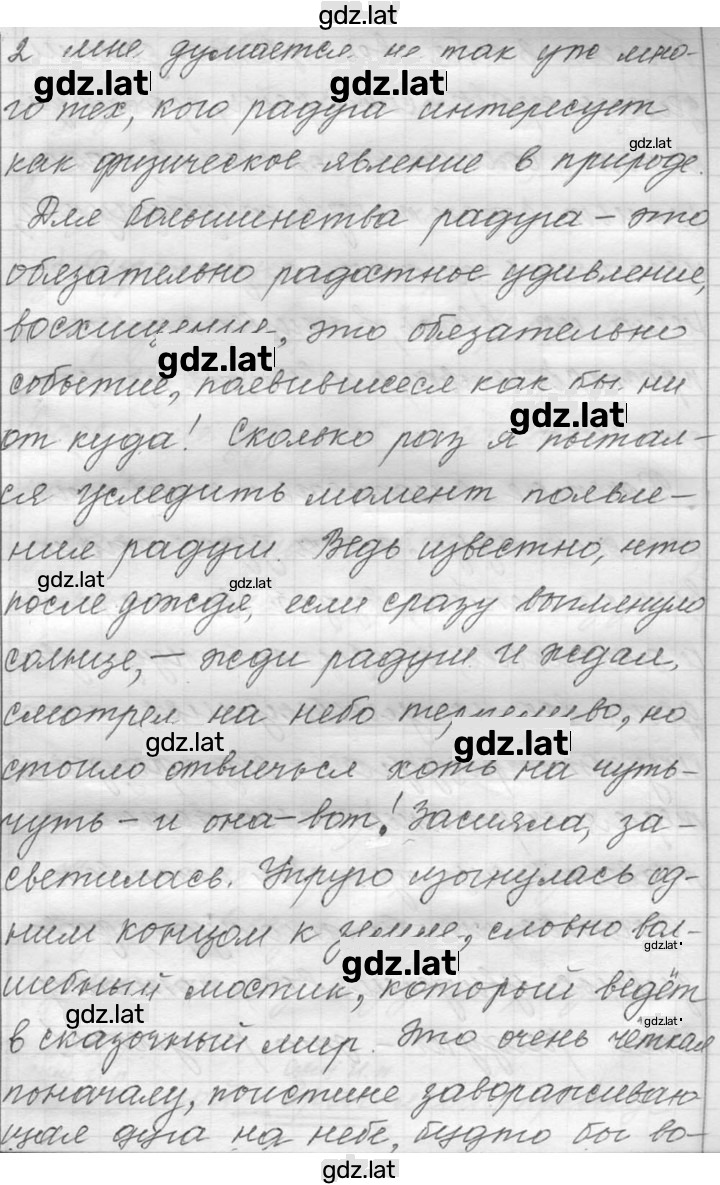 gdz.lat
2 мне думается не так уж мно-
gdz.lat gdz.lat
го тех, кого радуга интересует
gdz.lat
как физическое явление в природе.
Для большинства радуга – это
обязательно радостное удивление,
восхищение, это обязательно
gdz.lat
событие, появившееся как бы ни
gdz.lat
от куда! Сколько раз я пытал-
ся уследить момент появле-
ния радуги. Ведь известно, что
gdz.lat gdz.lat
после дождя, если сразу выглянуло
солнце, – жди радуги и ждал,
смотрел на небо терпеливо, но
gdz.lat gdz.lat
стоило отвлечься хоть на чуть-
чуть – и она – вот! Засияла, за-
светилась. Упруго изогнулась од-
ним концом к земле, словно вол-
gdz.lat gdz.lat
шебный мостик, который ведёт
gdz.lat gdz.lat
в сказочный мир. Это очень чёткая
поначалу, поистине заворажива
щая дуга на небе, будто бы во-
gdz.lat